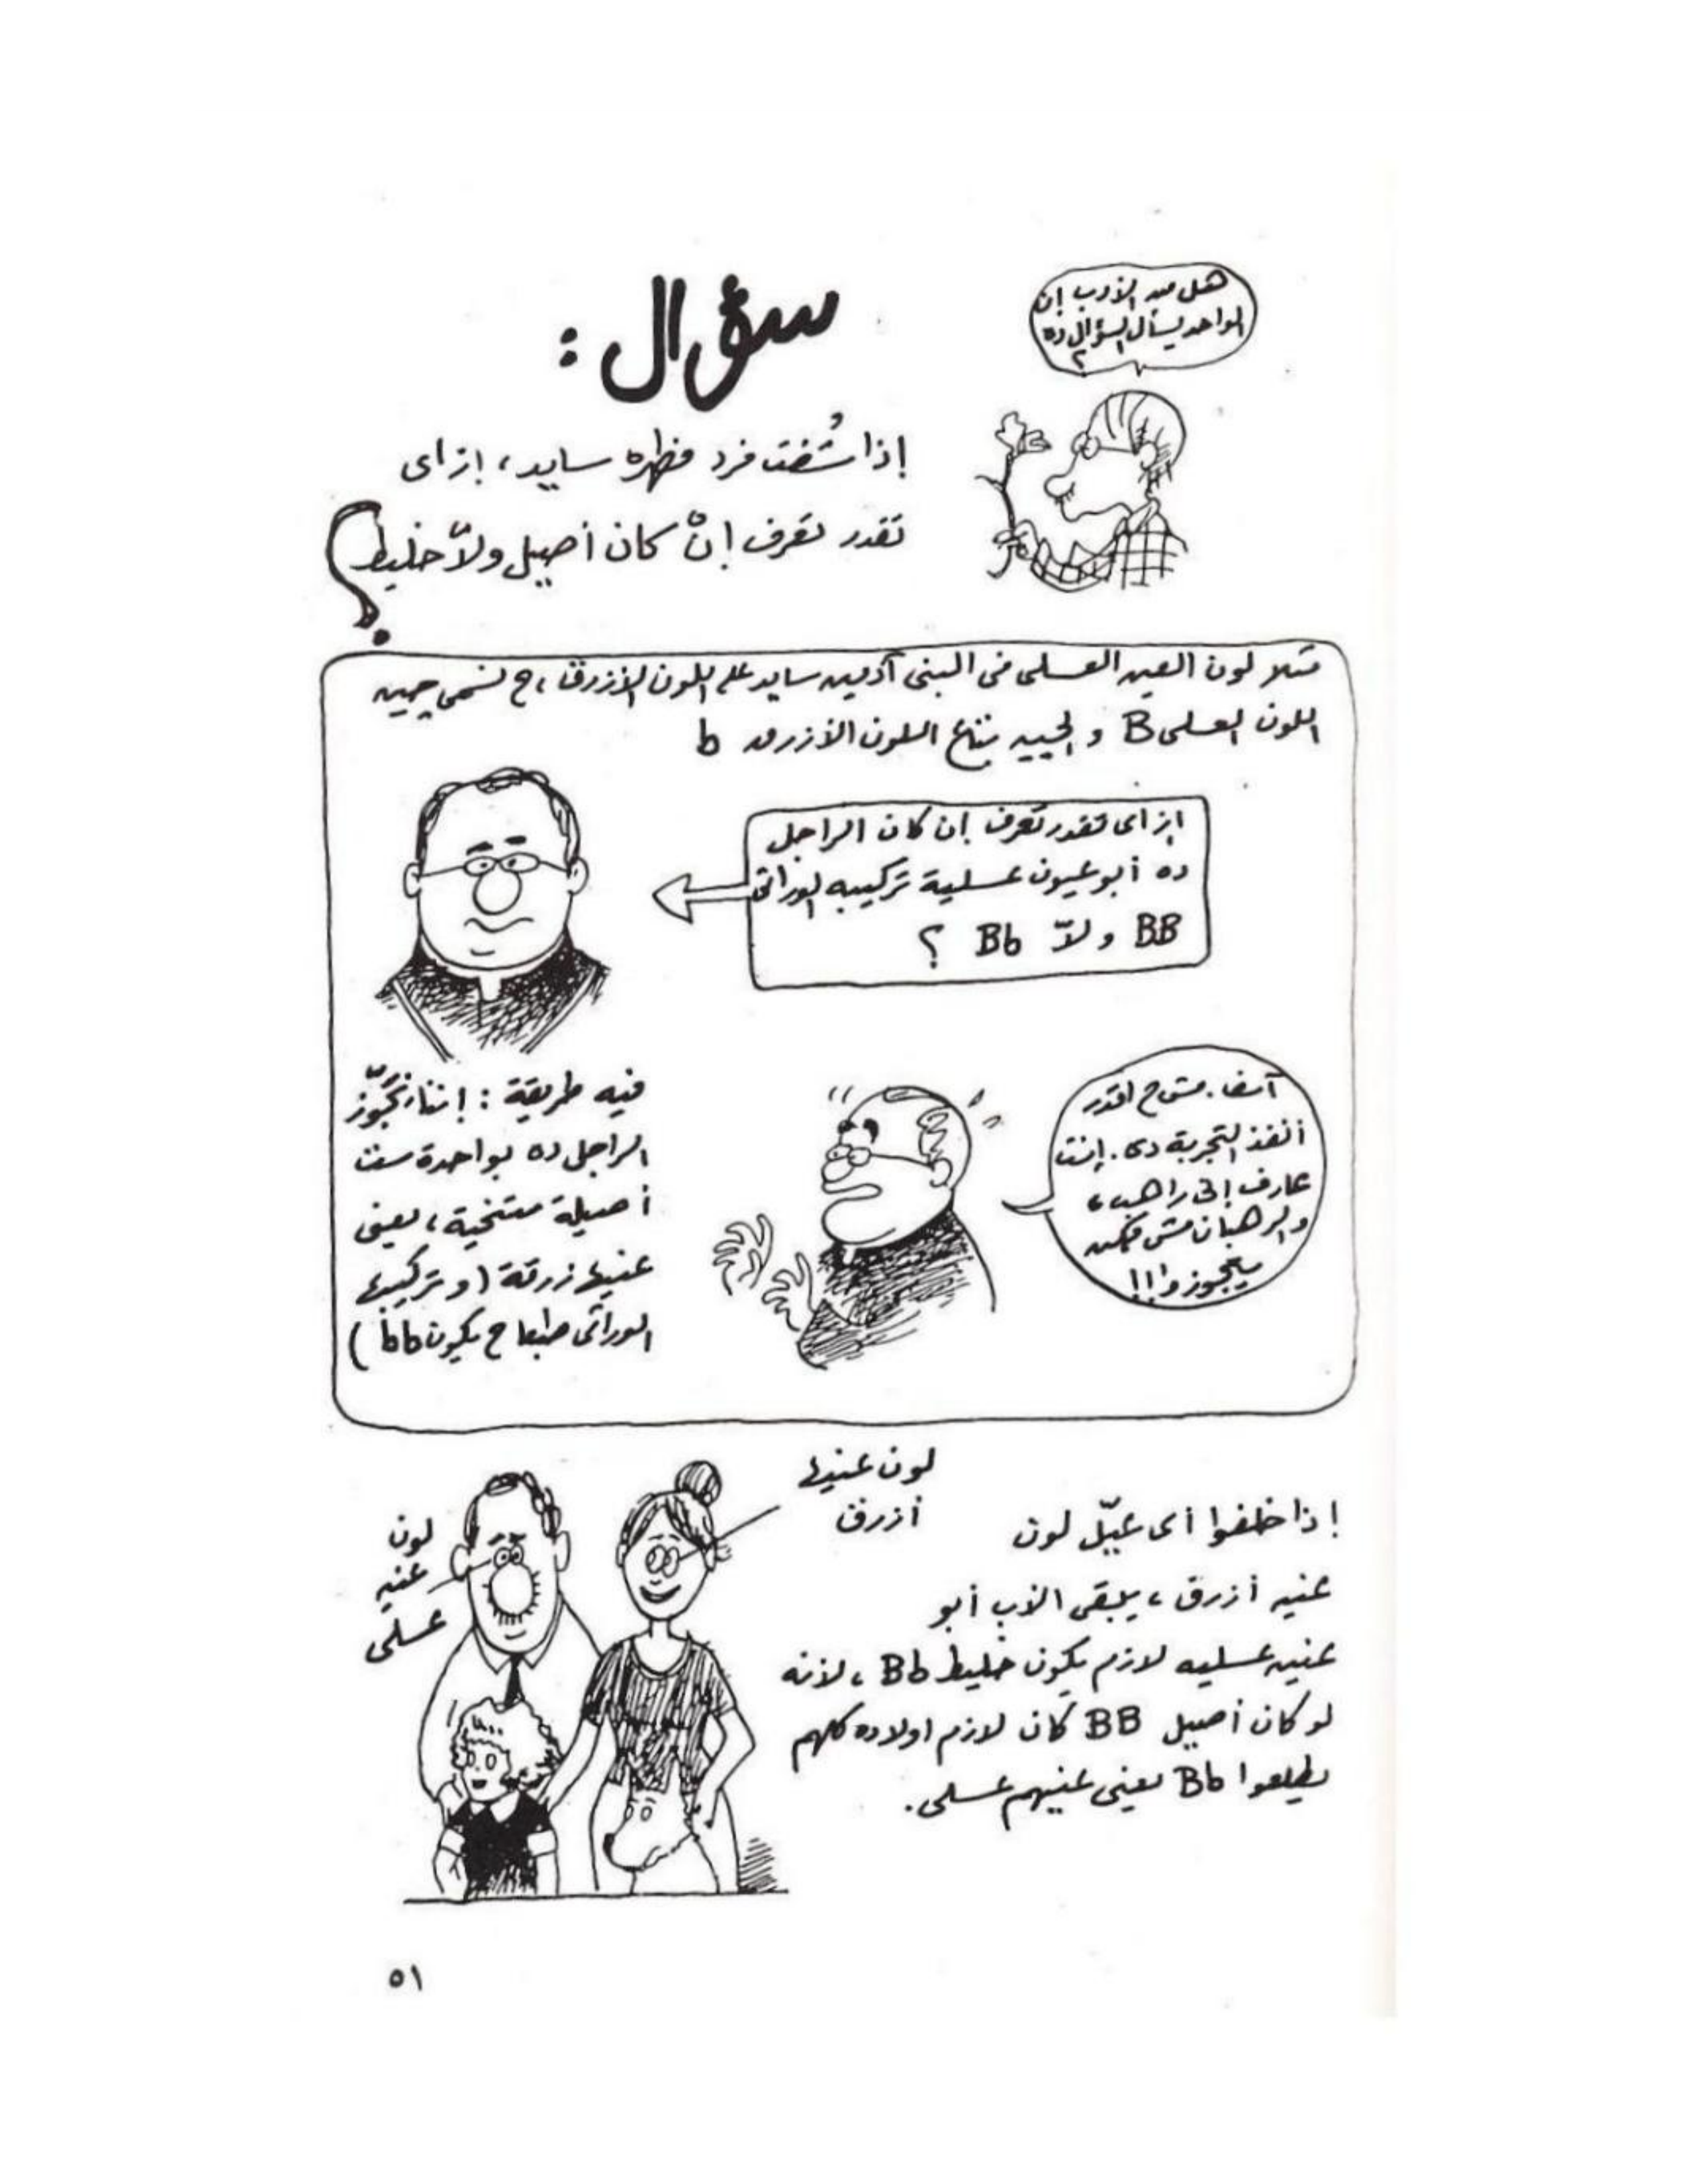 هل من الأدب إن
الواحد يسأل السؤال ده
؟
سؤال :
إذا شُفت فرد مظهره سايد، ازاى
تقدر تعرف إنْ كان أصيل ولاّ خليط؟
مثلا لون العين العسلى فى البنى آدمين سايد على اللون الأزرق، ح نسمى چين
اللون العسلى B والچين بتاع اللون الأزرق b
ازاى تقدر تعرف إن كان الراجل
ده أبو عيون عسلية تركيبه الوراثى
BB ولاّ Bb ؟
فيه طريقة : إننا نجَوّز
الراجل ده بواحدة ست
أصيلة متنحية، يعنى
عنيها زرقة (وتركيبها
الوراثى طبعا ح يكون bb)
آسف. مش ح اقدر
أنفذ التجربة دى. إنت
عارف إنى راهب،
والرهبان مش ممكن
يتجوزوا!!!
لون عنيها
أزرق
لون
عنيه
عسلى
إذا خلفوا أى عيّل لون
عنيه أزرق، يبقى الأب أبو
عنين عسليه لازم يكون خليط Bb، لأنه
لو كان أصيل BB كان لازم اولاده كلهم
يطلعوا Bb يعنى عنيهم عسلى.
٥١